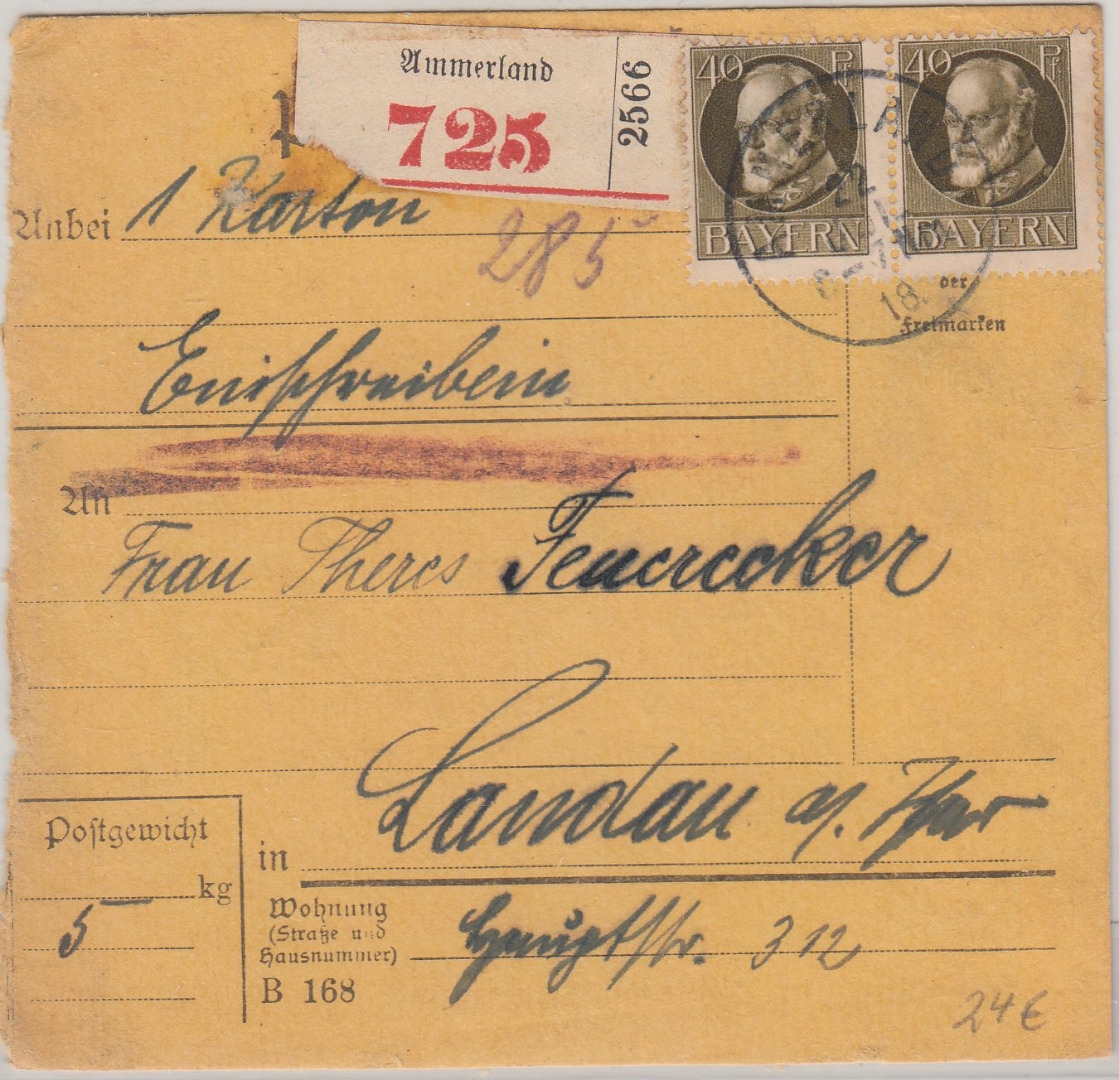 Ammerland
725
2566
40 Pf
BAYERN
40 Pf
BAYERN
AMMERLAND
22
18.
Anbei 1 Karton
285
der
Freimarken
Einschreiben
An
Frau Theres Feuerecker
Landau a/. Isar
in
Postgewicht
kg
5
Wohnung
(Straße und
Hausnummer)
Hauptstr. 312
B 168
24 €